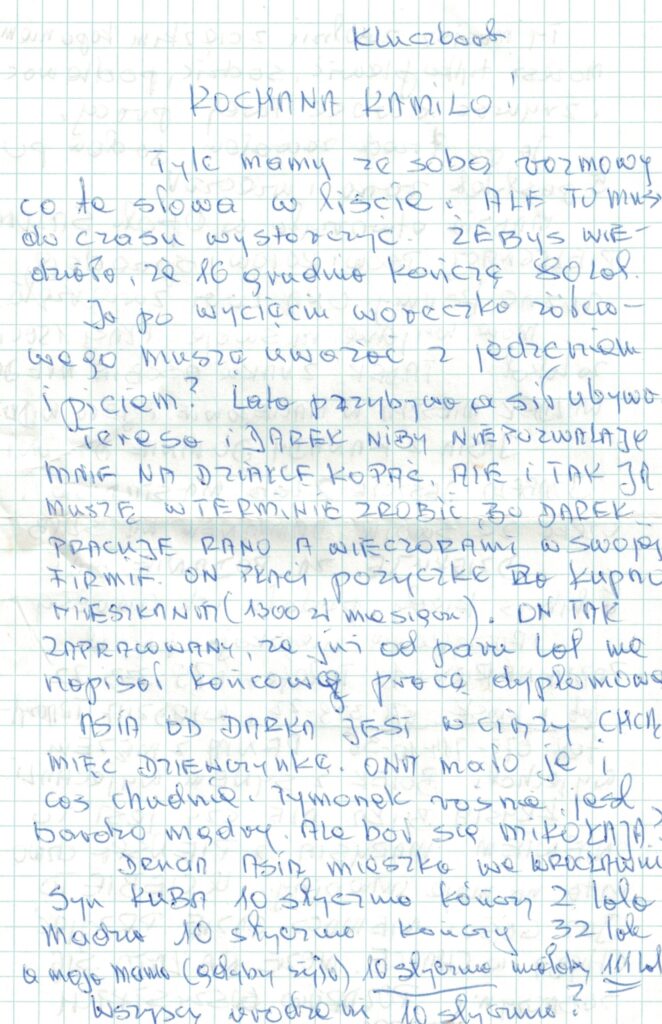 Kluczbork
KOCHANA KAMILO!
Tyle mamy ze sobą rozmowy
co te słowa w liście. ALE TO MUSI
do czasu wystarczyć. ŻEBYŚ WIE-
działa, że 16 grudnia kończę 80 lat.
Ja po wycięciu woreczka żółcio-
wego muszę uważać z jedzeniem
i piciem? Lata przybywa a sił ubywa
Teresa i DAREK NIBY NIEPOZWALAJĘ
MNIE NA DZIAŁCE KOPAĆ. ALE i TAK JA
MUSZĘ W TERMINIE ZROBIĆ, BO DAREK
PRACUJE RANO A WIECZORAMI W SWOJEJ
FIRMIE. ON PŁACI pożyczkę kupno
MIESZKANIA (1300 zł miesiąc). ON TAK
ZAPRACOWANY, że już od paru lat ma
napisać końcową pracę dyplomową
ASIA OD DARKA JEST W CIĄŻY CHCĄ
MIEĆ DZIEWCZYNKĘ. ONA mało je i
coś chudnie. Tymonek rośnie, jest
bardzo mądry. Ale boi się MIKOŁAJA?
ASIA mieszka we WROCŁAWIU
Syn KUBA 10 stycznia kończy 2 lata
10 stycznia kończy 32 lata
a moja mama (gdyby żyła) 10 stycznia miałaby 111 lat
Wszyscy urodzeni 10 stycznia?